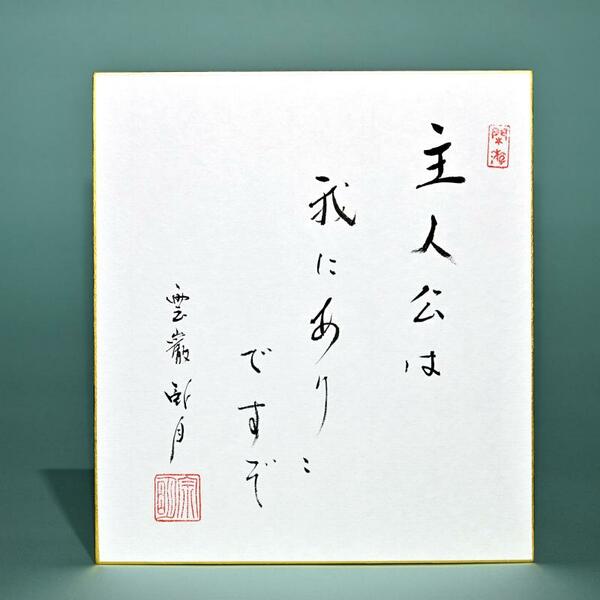 主人公は
我にあり
ですぞ
雲巌 臥月